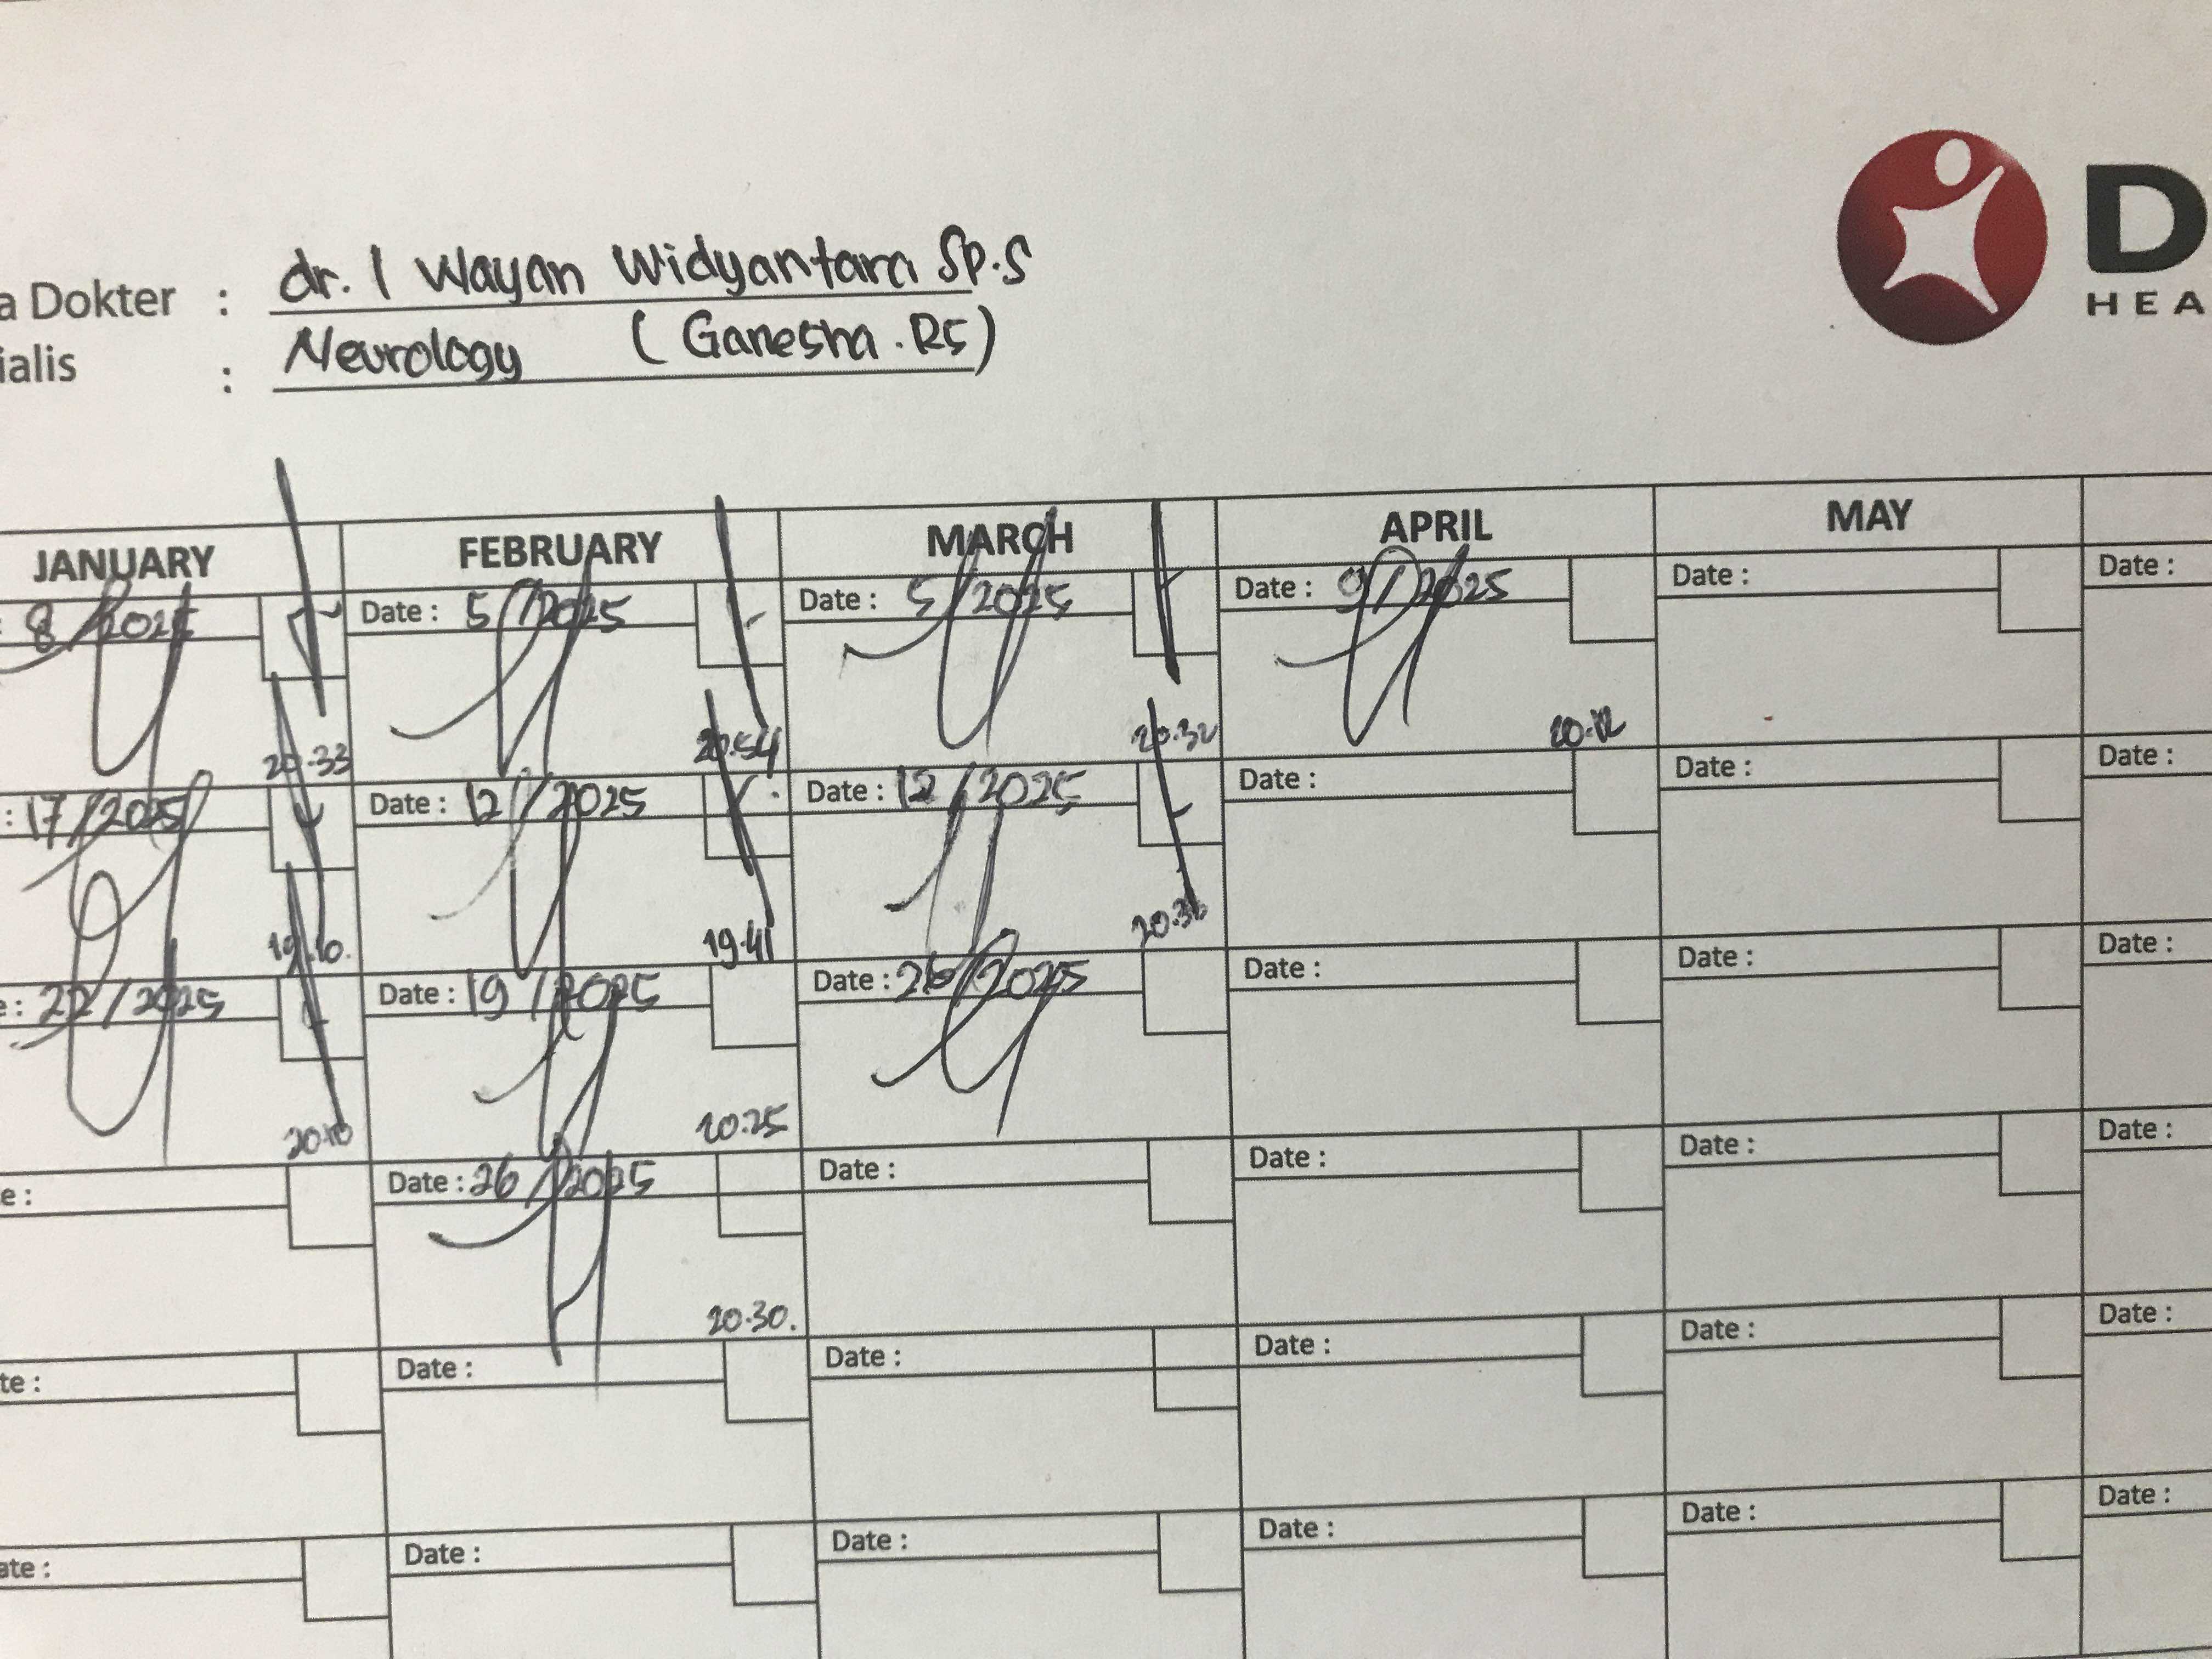 D
HEA
a Dokter : dr. I Wayan Widyantara Sp.S
ialis : Neurology (Ganesha.RS)
JANUARY FEBRUARY MARCH APRIL MAY
: 8/2025 Date : 5/2025 Date : 5/2025 Date : 9/2025 Date : Date :
20.33 20.54 20.32 20.12
: 17/2025 Date : 12/2025 Date : 12/2025 Date : Date : Date :
19.10. 19.41
e : 22/2025 Date : 19/2025 Date : 26/2025 Date : Date : Date :
20.10 20.25
e : Date : 26/2025 Date : Date : Date : Date :
20.30.
te : Date : Date : Date : Date : Date :
ate : Date : Date : Date : Date : Date :